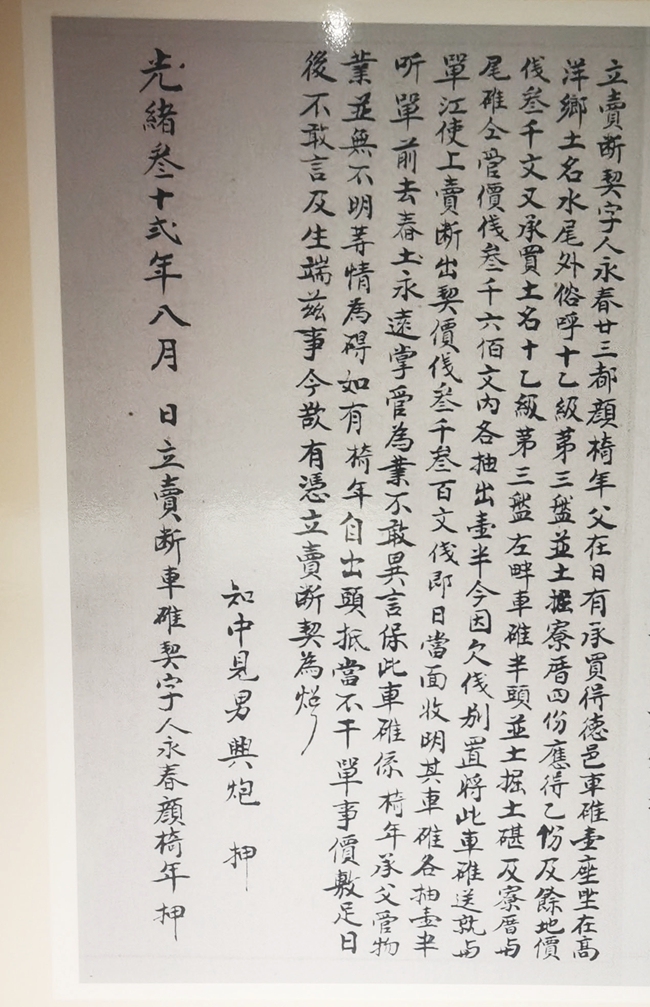 立賣断契字人永春廿三都顔椅年父在日有承買得德邑車碓壹座坐在高
洋鄉土名水尾外俗呼十乙級第三盤並土掘寮厝四份應得乙份及餘地價
伐叁千文又承買土名十乙級第三盤左畔車碓半頭並土掘土磡及寮厝与
尾碓仝管價伐叁千六佰文内各抽出壹半今因欠伐别置将此車碓送就与
單江使上賣断出契價伐叁千叁百文伐即日當面收明其車碓各抽壹半
听單前去舂土永遠掌管為業不敢異言保此車碓係椅年承父管物
業並無不明等情為碍如有椅年自出頭抵當不干單事價敷足日
後不敢言及生端兹事今欲有憑立賣断契為炤
知中見男興炮 押
光緒叁十弍年八月 日立賣断車碓契字人永春顔椅年 押